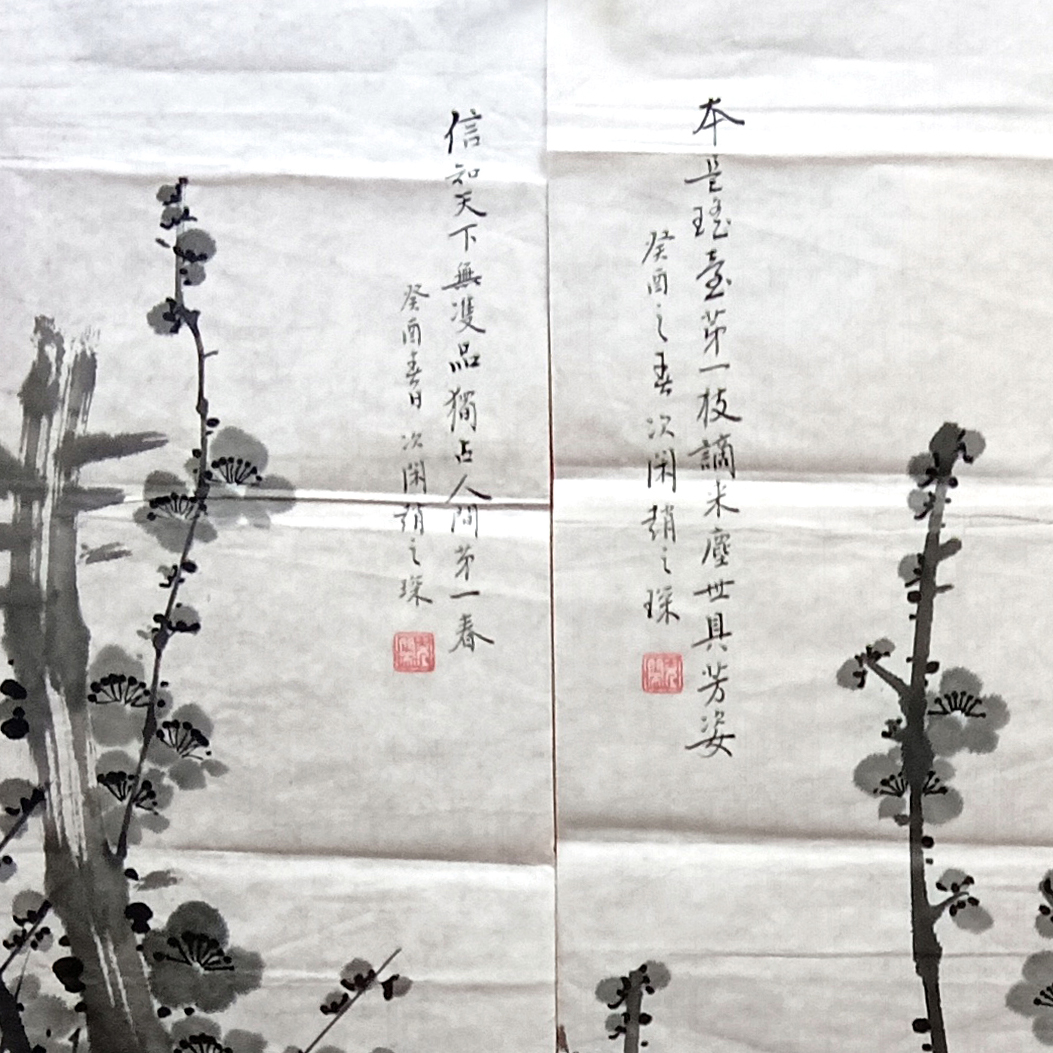 本是瑤臺第一枝謫來塵世具芳姿
癸酉之春次閑趙之琛
信知天下無雙品獨占人間第一春
癸酉春日次閑趙之琛